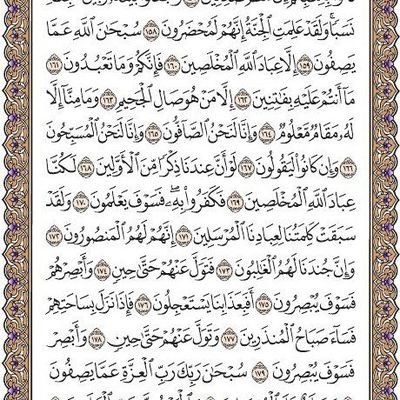 نَسَبًا ۚ وَلَقَدْ عَلِمَتِ ٱلْجِنَّةُ إِنَّهُمْ لَمُحْضَرُونَ ١٥٨ سُبْحَـٰنَ ٱللَّهِ عَمَّا
يَصِفُونَ ١٥٩ إِلَّا عِبَادَ ٱللَّهِ ٱلْمُخْلَصِينَ ١٦٠ فَإِنَّكُمْ وَمَا تَعْبُدُونَ ١٦١
مَآ أَنتُمْ عَلَيْهِ بِفَـٰتِنِينَ ١٦٢ إِلَّا مَنْ هُوَ صَالِ ٱلْجَحِيمِ ١٦٣ وَمَا مِنَّآ إِلَّا
لَهُۥ مَقَامٌ مَّعْلُومٌ ١٦٤ وَإِنَّا لَنَحْنُ ٱلصَّآفُّونَ ١٦٥ وَإِنَّا لَنَحْنُ ٱلْمُسَبِّحُونَ
١٦٦ وَإِن كَانُوا۟ لَيَقُولُونَ ١٦٧ لَوْ أَنَّ عِندَنَا ذِكْرًا مِّنَ ٱلْأَوَّلِينَ ١٦٨ لَكُنَّا
عِبَادَ ٱللَّهِ ٱلْمُخْلَصِينَ ١٦٩ فَكَفَرُوا۟ بِهِۦ ۖ فَسَوْفَ يَعْلَمُونَ ١٧٠ وَلَقَدْ
سَبَقَتْ كَلِمَتُنَا لِعِبَادِنَا ٱلْمُرْسَلِينَ ١٧١ إِنَّهُمْ لَهُمُ ٱلْمَنصُورُونَ ١٧٢
وَإِنَّ جُندَنَا لَهُمُ ٱلْغَـٰلِبُونَ ١٧٣ فَتَوَلَّ عَنْهُمْ حَتَّىٰ حِينٍ ١٧٤ وَأَبْصِرْهُمْ
فَسَوْفَ يُبْصِرُونَ ١٧٥ أَفَبِعَذَابِنَا يَسْتَعْجِلُونَ ١٧٦ فَإِذَا نَزَلَ بِسَاحَتِهِمْ
فَسَآءَ صَبَاحُ ٱلْمُنذَرِينَ ١٧٧ وَتَوَلَّ عَنْهُمْ حَتَّىٰ حِينٍ ١٧٨ وَأَبْصِرْ
فَسَوْفَ يُبْصِرُونَ ١٧٩ سُبْحَـٰنَ رَبِّكَ رَبِّ ٱلْعِزَّةِ عَمَّا يَصِفُونَ